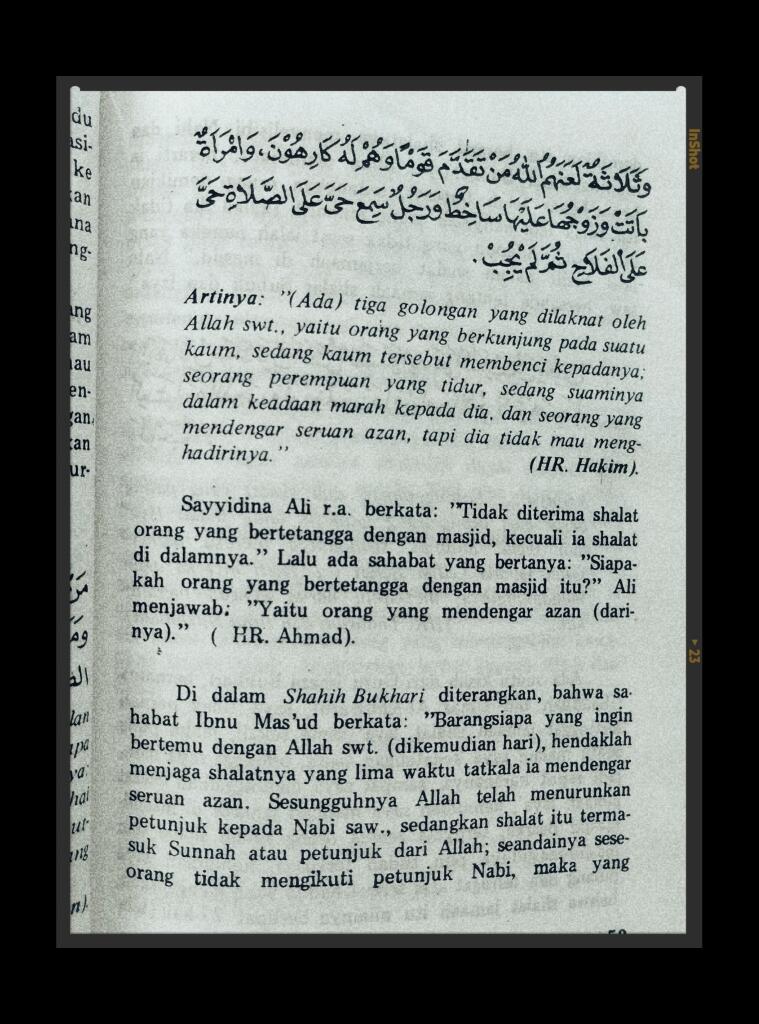 وَثَلَاثَةٌ لَعَنَهُمُ اللهُ مَنْ تَقَدَّمَ قَوْمًا وَهُمْ لَهُ كَارِهُوْنَ، وَامْرَأَةٌ
بَاتَتْ وَزَوْجُهَا عَلَيْهَا سَاخِطٌ وَرَجُلٌ سَمِعَ حَيَّ عَلَى الصَّلَاةِ حَيَّ
عَلَى الْفَلَاحِ ثُمَّ لَمْ يُجِبْ.
Artinya: "(Ada) tiga golongan yang dilaknat oleh
Allah swt., yaitu orang yang berkunjung pada suatu
kaum, sedang kaum tersebut membenci kepadanya;
seorang perempuan yang tidur, sedang suaminya
dalam keadaan marah kepada dia, dan seorang yang
mendengar seruan azan, tapi dia tidak mau meng-
hadirinya."
(HR. Hakim).
Sayyidina Ali r.a. berkata: "Tidak diterima shalat
orang yang bertetangga dengan masjid, kecuali ia shalat
di dalamnya." Lalu ada sahabat yang bertanya: "Siapa-
kah orang yang bertetangga dengan masjid itu?" Ali
menjawab: "Yaitu orang yang mendengar azan (dari-
nya)." ( HR. Ahmad).
Di dalam Shahih Bukhari diterangkan, bahwa sa-
habat Ibnu Mas'ud berkata: "Barangsiapa yang ingin
bertemu dengan Allah swt. (dikemudian hari), hendaklah
menjaga shalatnya yang lima waktu tatkala ia mendengar
seruan azan. Sesungguhnya Allah telah menurunkan
petunjuk kepada Nabi saw., sedangkan shalat itu terma-
suk Sunnah atau petunjuk dari Allah; seandainya sese-
orang tidak mengikuti petunjuk Nabi, maka yang
InShot
23